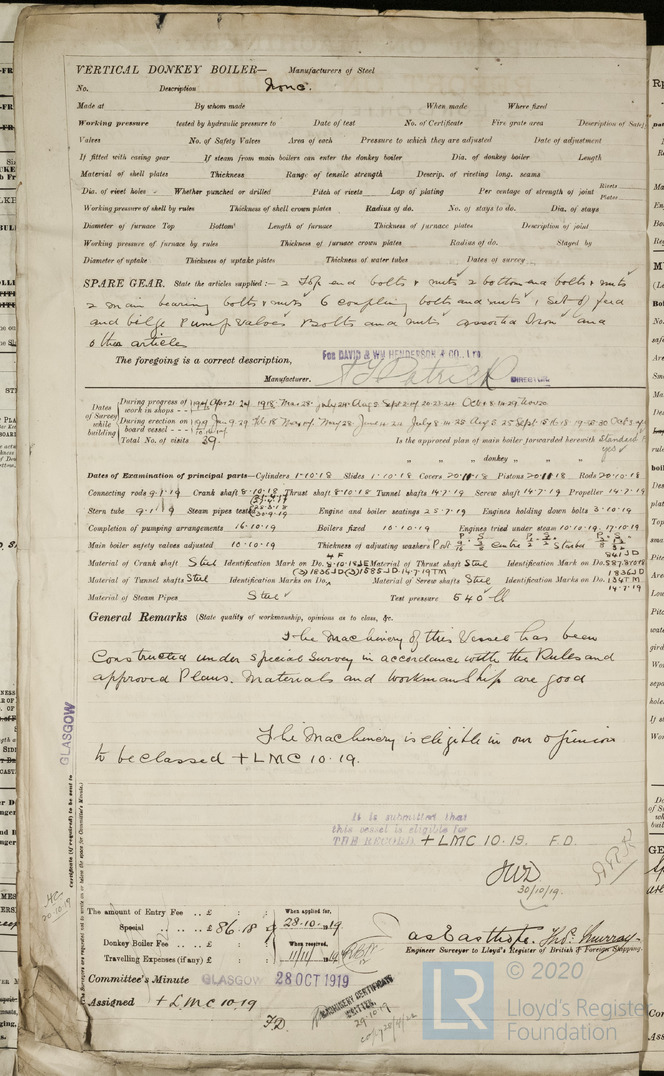 VERTICAL DONKEY BOILER— Manufacturers of Steel
No. Description None.
Made at By whom made When made Where fixed
Working pressure tested by hydraulic pressure to Date of test No. of Certificate Fire grate area Description of Safety
Valves No. of Safety Valves Area of each Pressure to which they are adjusted Date of adjustment
If fitted with easing gear If steam from main boilers can enter the donkey boiler Dia. of donkey boiler Length
Material of shell plates Thickness Range of tensile strength Descrip. of riveting long. seams
Dia. of rivet holes Whether punched or drilled Pitch of rivets Lap of plating Per centage of strength of joint Rivets Plates
Working pressure of shell by rules Thickness of shell crown plates Radius of do. No. of stays to do. Dia. of stays
Diameter of furnace Top Bottom Length of furnace Thickness of furnace plates Description of joint
Working pressure of furnace by rules Thickness of furnace crown plates Radius of do. Stayed by
Diameter of uptake Thickness of uptake plates Thickness of water tubes Dates of survey
SPARE GEAR. State the articles supplied:— 2 Top end bolts & nuts 2 bottom end bolts & nuts
2 main bearing bolts & nuts 6 coupling bolts and nuts 1 set of feed
and bilge pump valves Bolts and nuts assorted Iron and
other articles
The foregoing is a correct description,
FOR DAVID & WM HENDERSON & CO., LTD
Manufacturer. DIRECTOR.
Dates of Survey while building
During progress of work in shops - -
During erection on board vessel - - -
Total No. of visits 39.
Is the approved plan of main boiler forwarded herewith Standard yes
" " donkey " " "
Dates of Examination of principal parts—Cylinders 1-10-18 Slides 1-10-18 Covers 20-11-18 Pistons 20-11-18 Rods 20-10-18
Connecting rods 9-7-19 Crank shaft 8-10-18 Thrust shaft 8-10-18 Tunnel shafts 14-7-19 Screw shaft 14-7-19 Propeller 14-7-19
Stern tube 9-1-19 Steam pipes tested Engine and boiler seatings 25-7-19 Engines holding down bolts 3-10-19
Completion of pumping arrangements 16-10-19 Boilers fixed 10-10-19 Engines tried under steam 10-10-19, 17-10-19
Main boiler safety valves adjusted 10-10-19 Thickness of adjusting washers
Material of Crank shaft Steel Identification Mark on Do. Material of Thrust shaft Steel Identification Mark on Do.
Material of Tunnel shafts Steel Identification Marks on Do. Material of Screw shafts Steel Identification Marks on Do.
14-7-19
Material of Steam Pipes Steel Test pressure 540 lb
General Remarks (State quality of workmanship, opinions as to class, &c.
The Machinery of this Vessel has been
Constructed under Special Survey in accordance with the Rules and
approved Plans. Materials and workmanship are good
The Machinery is eligible in our opinion
to be classed + LMC 10.19.
It is submitted that
this vessel is eligible for
THE RECORD + LMC 10.19. F.D.
30/10/19.
GLASGOW
Certificate (if required) to be sent to
The amount of Entry Fee .. £ : : When applied for,
Special .. £ 86.18 : 28-10-1919.
Donkey Boiler Fee .. £ : : When received,
Travelling Expenses (if any) £ : : 11/11/19
Engineer Surveyor to Lloyd's Register of British & Foreign Shipping.
Committee's Minute GLASGOW 28 OCT 1919
Assigned + LMC 10.19
F.D.
MACHINERY CERTIFICATE
WRITTEN.
29-10-19
© 2020
LR
Lloyd's Register
Foundation